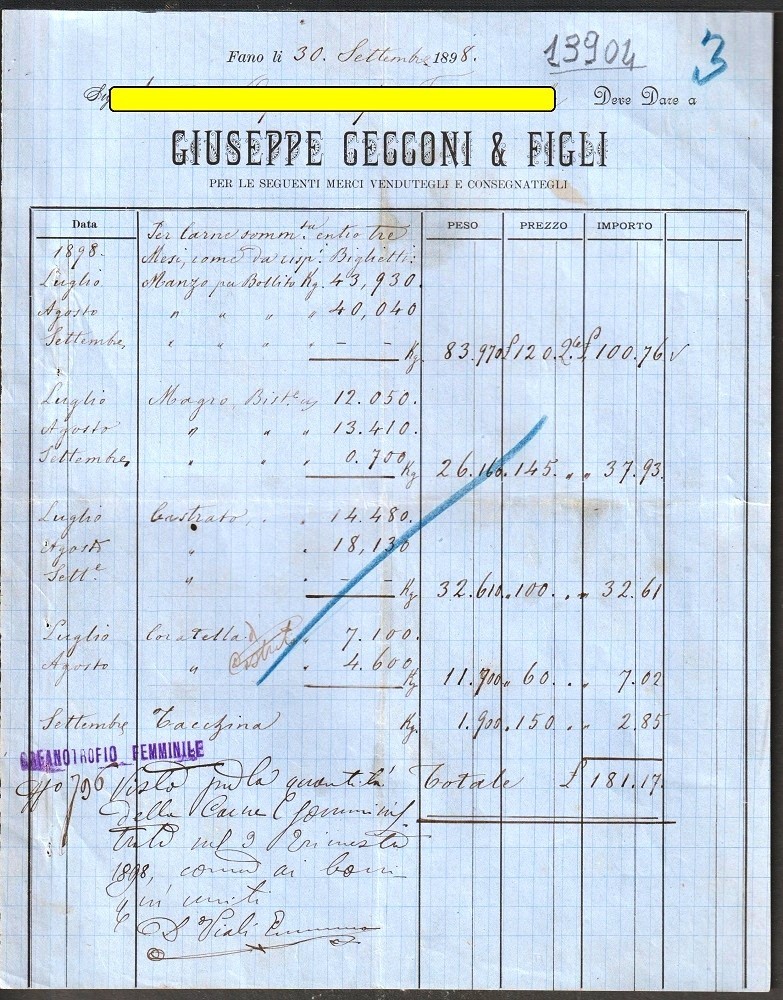 Fano li 30. Settembre 1898.
13904
3
Deve Dare a
GIUSEPPE CECCONI & FIGLI
PER LE SEGUENTI MERCI VENDUTEGLI E CONSEGNATEGLI
Data PESO PREZZO IMPORTO
Per Carne somm.ta entro tre
1898. Mesi, come da risp. Biglietti:
Luglio Manzo per Bollito Kg. 43,930.
Agosto " " " " 40,040
Settembre, " " " " – –
Kg. 83.970 £ 120. £ 100.76
Luglio Magro Bist.e 12.050.
Agosto " " " 13.410.
Settembre, " " " 0.700
Kg 26.160 " 145. " " 37.93
Luglio Castrato, . " 14.480.
Agosto " " 18,130
Sett.e " " – –
Kg. 32.610 " 100. " " 32.61
Luglio Coratella d " 7.100.
Castrato
Agosto " " 4.600
Kg 11.700 " 60. " " 7.02
Settembre Tacchina Kg. 1.900. 150 " " 2.85
ORFANOTROFIO FEMMINILE
796
Totale £ 181.17.
Visto per la quantità
della Carne
3 Trimestre
1898, come ai boni
uniti